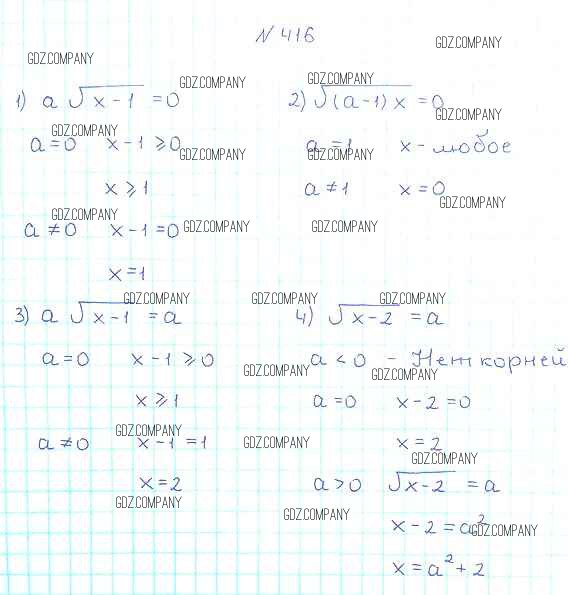 N 416
GDZ.COMPANY
GDZ.COMPANY
1) a √x-1 = 0
GDZ.COMPANY
a = 0 x-1 ≥ 0
GDZ.COMPANY
GDZ.COMPANY
x ≥ 1
a ≠ 0 x-1 = 0
GDZ.COMPANY
GDZ.COMPANY
x = 1
2) √(a-1)x = 0
GDZ.COMPANY
GDZ.COMPANY
a = 1 x - любое
GDZ.COMPANY
a ≠ 1 x = 0
GDZ.COMPANY
GDZ.COMPANY
3) a √x-1 = a
GDZ.COMPANY
a = 0 x-1 ≥ 0
x ≥ 1
a ≠ 0 x-1 = 1
GDZ.COMPANY
x = 2
GDZ.COMPANY
4) √x-2 = a
GDZ.COMPANY
GDZ.COMPANY
a < 0 - Нет корней
GDZ.COMPANY
GDZ.COMPANY
a = 0 x-2 = 0
GDZ.COMPANY
x = 2
GDZ.COMPANY
a > 0 √x-2 = a
GDZ.COMPANY
x-2 = a²
GDZ.COMPANY
x = a² + 2